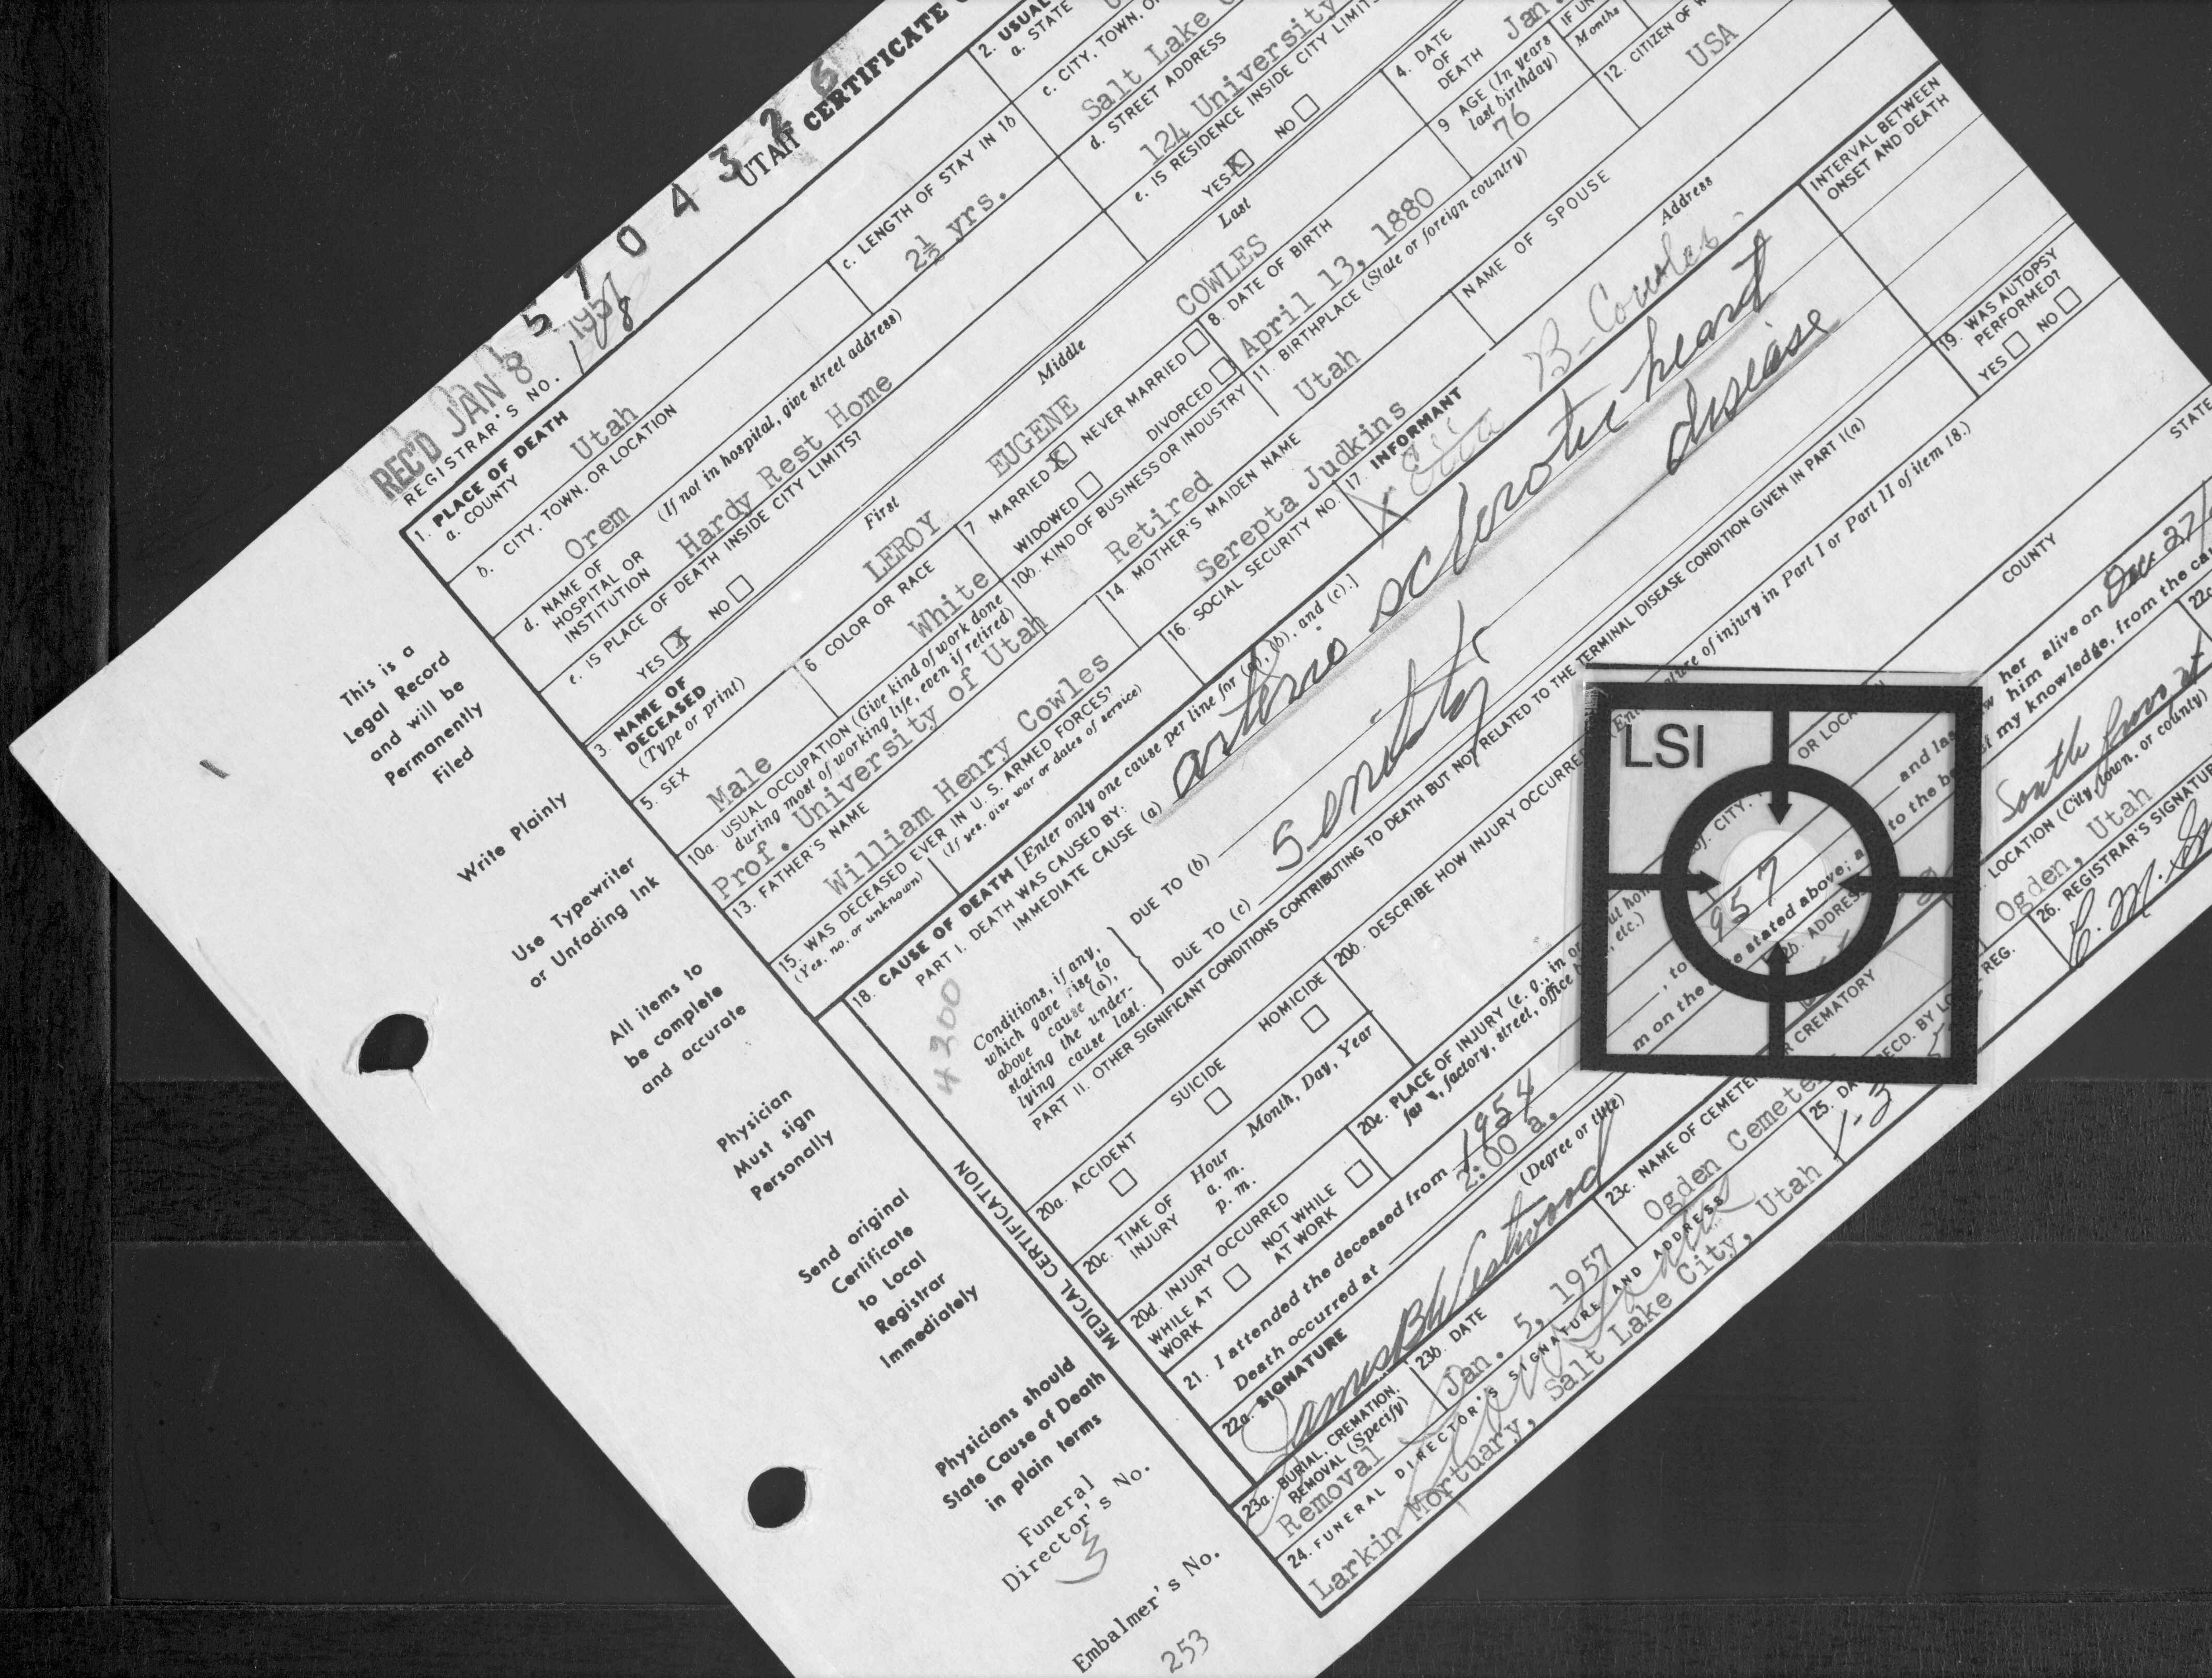 5 7 0 4 3 2 6
REC'D JAN 8 1957
UTAH CERTIFICATE
REGISTRAR'S NO. 118
1. PLACE OF DEATH
a. COUNTY
Utah
b. CITY, TOWN, OR LOCATION
Orem
c. LENGTH OF STAY IN 1b
2½ yrs.
d. NAME OF HOSPITAL OR INSTITUTION
(If not in hospital, give street address)
Hardy Rest Home
e. IS PLACE OF DEATH INSIDE CITY LIMITS?
YES X NO
2. USUAL
a. STATE
c. CITY, TOWN, O
Salt Lake
d. STREET ADDRESS
124 University
e. IS RESIDENCE INSIDE CITY LIMIT
YES X NO
3. NAME OF DECEASED
(Type or print)
First
LEROY
Middle
EUGENE
Last
COWLES
4. DATE OF DEATH
Jan.
5. SEX
Male
6 COLOR OR RACE
White
7 MARRIED X NEVER MARRIED
WIDOWED DIVORCED
8. DATE OF BIRTH
April 13, 1880
9 AGE (In years last birthday)
76
IF UN
Months
10a. USUAL OCCUPATION (Give kind of work done during most of working life, even if retired)
Prof. University of Utah
10b. KIND OF BUSINESS OR INDUSTRY
Retired
11. BIRTHPLACE (State or foreign country)
Utah
12. CITIZEN OF
USA
13. FATHER'S NAME
William Henry Cowles
14. MOTHER'S MAIDEN NAME
Serepta Judkins
NAME OF SPOUSE
15. WAS DECEASED EVER IN U. S. ARMED FORCES?
(Yes, no, or unknown) (If yes, give war or dates of service)
16. SOCIAL SECURITY NO.
17. INFORMANT
Address
X B. Cowles
18. CAUSE OF DEATH [Enter only one cause per line for (a), (b), and (c).]
PART I. DEATH WAS CAUSED BY:
IMMEDIATE CAUSE (a)
arterio sclerotic heart
disease
INTERVAL BETWEEN ONSET AND DEATH
4200
Conditions, if any,
which gave rise to
above cause (a),
stating the under-
lying cause last.
DUE TO (b)
DUE TO (c)
Senility
PART II. OTHER SIGNIFICANT CONDITIONS CONTRIBUTING TO DEATH BUT NOT RELATED TO THE TERMINAL DISEASE CONDITION GIVEN IN PART I(a)
19. WAS AUTOPSY PERFORMED?
YES NO
20a. ACCIDENT SUICIDE HOMICIDE
20b. DESCRIBE HOW INJURY OCCURRE
ature of injury in Part I or Part II of item 18.)
20c. TIME OF INJURY
Hour
a. m.
p. m.
Month, Day, Year
20d. INJURY OCCURRED
WHILE AT WORK NOT WHILE AT WORK
20e. PLACE OF INJURY (e. g., in or
factory, street, office
etc.)
CITY,
OR LOCA
COUNTY
STATE
21. I attended the deceased from 1954
, to
957
and las
w her him alive on Dec 27
Death occurred at 2:00 a.
m on the
e stated above; a
to the be
my knowledge, from the ca
22a. SIGNATURE
(Degree or title)
James B Westwood
ADDRES
22c
23a. BURIAL, CREMATION, REMOVAL (Specify)
Removal
23b. DATE
Jan. 5, 1957
23c. NAME OF CEMETE
R CREMATORY
Ogden Cemete
LOCATION (City, town, or county)
Ogden, Utah
24. FUNERAL DIRECTOR'S SIGNATURE AND ADDRESS
Larkin Mortuary, Salt Lake City, Utah
25. DA
ECD. BY LO
REG.
26. REGISTRAR'S SIGNATUR
MEDICAL CERTIFICATION
LSI
This is a
Legal Record
and will be
Permanently
Filed
Write Plainly
Use Typewriter
or Unfading Ink
All items to
be complete
and accurate
Physician
Must sign
Personally
Send original
Certificate
to Local
Registrar
Immediately
Physicians should
State Cause of Death
in plain terms
Funeral
Director's No.
3
Embalmer's No.
253